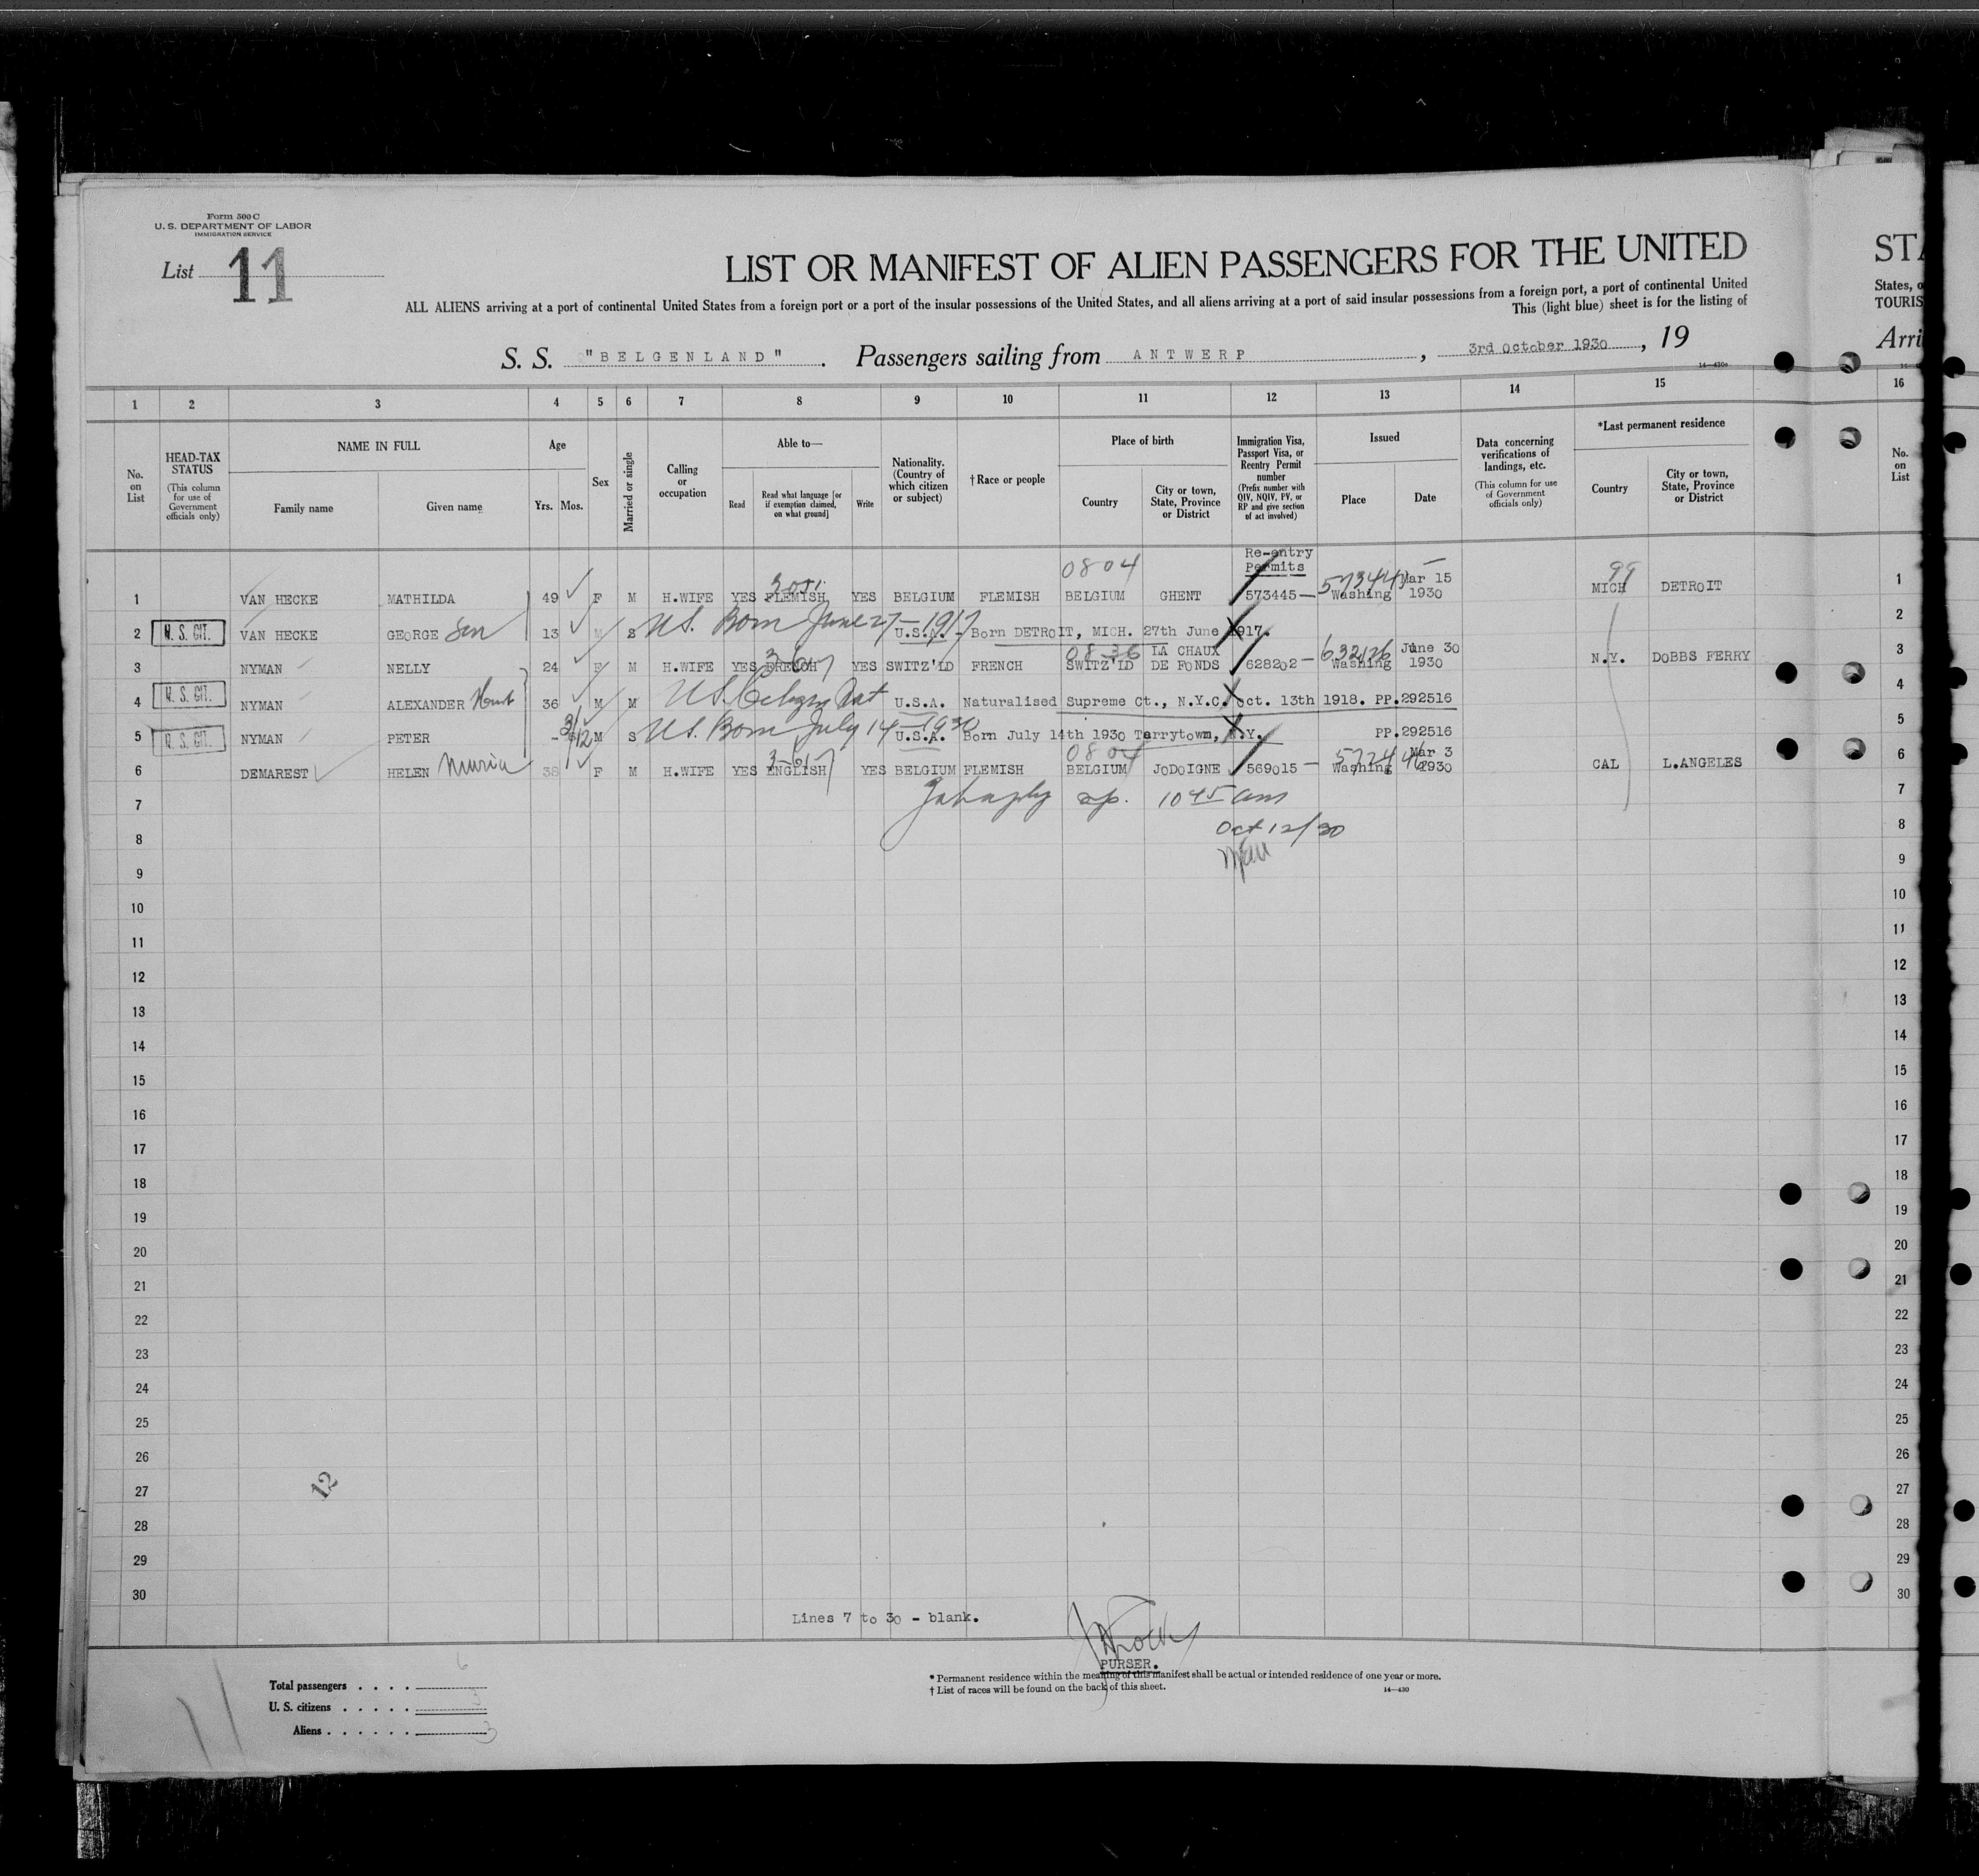 Form 500 C
U. S. DEPARTMENT OF LABOR
IMMIGRATION SERVICE
List 11
LIST OR MANIFEST OF ALIEN PASSENGERS FOR THE UNITED
STA
ALL ALIENS arriving at a port of continental United States from a foreign port or a port of the insular possessions of the United States, and all aliens arriving at a port of said insular possessions from a foreign port, a port of continental United
States, o
This (light blue) sheet is for the listing of
TOURIS
S. S. "BELGENLAND". Passengers sailing from ANTWERP, 3rd October 1930, 19
Arri
14—430
1 2 3 4 5 6 7 8 9 10 11 12 13 14 15 16
No. on List
HEAD-TAX STATUS (This column for use of Government officials only)
NAME IN FULL Family name Given name
Age Yrs. Mos.
Sex
Married or single
Calling or occupation
Able to— Read Read what language [or if exemption claimed, on what ground] Write
Nationality. (Country of which citizen or subject)
† Race or people
Place of birth Country City or town, State, Province or District
Immigration Visa, Passport Visa, or Reentry Permit number (Prefix number with QIV, NQIV, PV, or RP and give section of act involved)
Issued Place Date
Data concerning verifications of landings, etc. (This column for use of Government officials only)
*Last permanent residence Country City or town, State, Province or District
No. on List
Re-entry Permits
0804 99
1 VAN HECKE MATHILDA 49 F M H.WIFE YES FLEMISH YES BELGIUM FLEMISH BELGIUM GHENT 573445— Washing Mar 15 1930 MICH DETROIT 1
2 U. S. CIT. VAN HECKE GEORGE Son 13 M S US. Born June 27-1917 U.S.A. - Born DETROIT, MICH. 27th June 1917. 2
0836 632126
3 NYMAN NELLY 24 F M H.WIFE YES FRENCH YES SWITZ'LD FRENCH SWITZ'LD LA CHAUX DE FONDS 628202— Washing June 30 1930 N.Y. DOBBS FERRY 3
4 U. S. CIT. NYMAN ALEXANDER 36 M M U.S.A. Naturalised Supreme Ct., N.Y.C. Oct. 13th 1918. PP.292516 4
5 U. S. CIT. NYMAN PETER 3/12 M S US. Born July 14-1930 U.S.A. Born July 14th 1930 Tarrytown, N.Y. PP.292516 5
0804
6 DEMAREST HELEN Maria 38 F M H.WIFE YES ENGLISH YES BELGIUM FLEMISH BELGIUM JODOIGNE 569015— Washing Mar 3 1930 CAL L.ANGELES 6
7 10 45 am 7
8 Oct 12/30 8
9 9
10 10
11 11
12 12
13 13
14 14
15 15
16 16
17 17
18 18
19 19
20 20
21 21
22 22
23 23
24 24
25 25
26 26
27 12 27
28 28
29 29
30 30
Lines 7 to 30 - blank.
PURSER.
Total passengers . . . . 6
U. S. citizens . . . . . 3
Aliens . . . . . . 3
* Permanent residence within the meaning of this manifest shall be actual or intended residence of one year or more.
† List of races will be found on the back of this sheet.
14—430